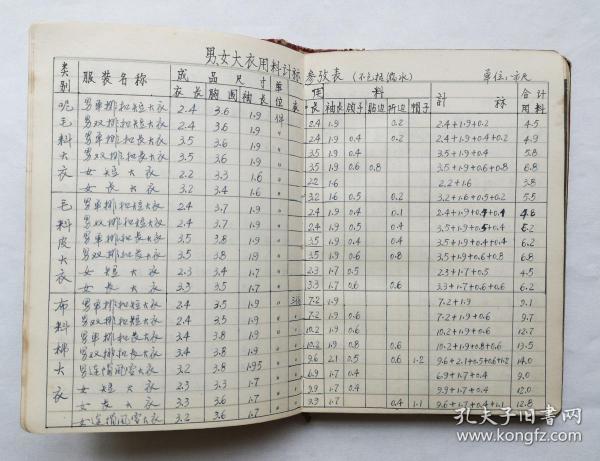 男女大衣用料计称参考表（不包括缩水） 单位：市尺
类别 服装名称 成品尺寸 单位 用料 计称 合计用料
衣长 胸围 袖长 衣长 袖长 领子 贴边 折边 帽子
呢毛料大衣
男单排扣短大衣 2.4 3.6 1.9 件 2.4 1.9 0.2 2.4+1.9+0.2 4.5
男双排扣短大衣 2.4 3.6 1.9 〃 2.4 1.9 0.4 0.2 2.4+1.9+0.4+0.2 4.9
男单排扣长大衣 3.5 3.6 1.9 〃 3.5 1.9 0.4 3.5+1.9+0.4 5.8
男双排扣长大衣 3.5 3.6 1.9 〃 3.5 1.9 0.6 0.8 3.5+1.9+0.6+0.8 6.8
女短大衣 2.2 3.3 1.6 〃 2.2 1.6 2.2+1.6 3.8
女长大衣 3.2 3.4 1.6 〃 3.2 1.6 0.5 0.2 3.2+1.6+0.5+0.2 5.5
毛料皮大衣
男单排扣短大衣 2.4 3.7 1.9 〃 2.4 1.9 0.4 0.1 4.8
男双排扣短大衣 2.4 3.7 1.9 〃 2.4 1.9 0.5 0.4
男单排扣长大衣 3.5 3.8 1.9 〃 3.5 1.9 0.4 0.4 3.5+1.9+0.4+0.4 6.2
男双排扣长大衣 3.5 3.8 〃 3.5 1.9 0.6 0.8 3.5+1.9+0.6+0.8 6.8
女短大衣 2.3 3.4 1.7 〃 2.3 1.7 0.5 2.3+1.7+0.5 4.5
女长大衣 3.3 3.5 1.7 〃 3.3 1.7 0.6 0.6 3.3+1.7+0.6+0.6 6.2
布料棉大衣
男单排扣短大衣 2.4 3.5 1.9 7.2 1.9 7.2+1.9 9.1
男双排扣短大衣 2.4 3.5 1.9 〃 7.2 1.9 0.6 7.2+1.9+0.6 9.7
男单排扣长大衣 3.4 3.8 1.9 〃 10.2 1.9 0.6 10.2+1.9+0.6 12.7
男双排扣长大衣 3.4 3.8 1.9 〃 10.2 1.9 0.8 0.6 10.2+1.9+0.8+0.6 13.5
男连帽风雪大衣 3.2 3.8 1.95 〃 9.6 2.1 0.5 0.6 1.2 9.6+2.1+0.5+0.6+1.2 14.0
女短大衣 2.3 3.3 1.7 〃 6.9 1.7 0.4 6.9+1.7+0.4 9.0
女长大衣 3.3 3.6 1.7 〃 9.9 1.7 0.4 9.9+1.7+0.4 12.0
女连帽风雪大衣 3.2 3.6 1.7 〃 1.7 0.4 1.1 9.6+1.7+0.4+1.1 12.8
孔夫子旧书网
www.kongfz.com